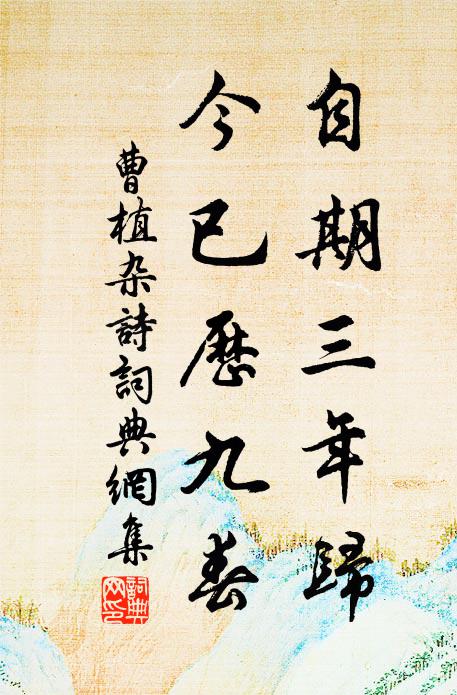 自期三年歸
今已歷九春
曹植杂詩詞典網集
詞典网印